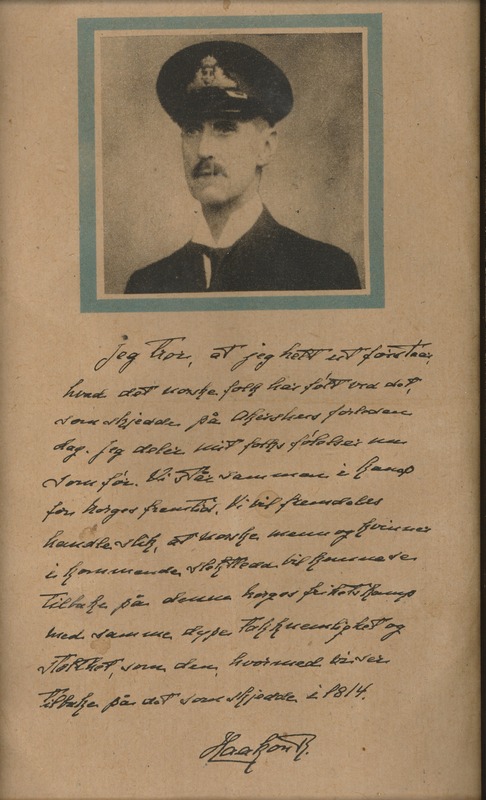 Jeg tror, at jeg helt ut forstaar,
hvad det norske folk har følt ved det,
som skjedde på Akershus forleden
dag. Jeg deler mit folks følelser nu
som før. Vi står sammen i kamp
for Norges fremtid. Vi vil fremdeles
handle slik, at norske menn og kvinner
i kommende slektledd vil kunne se
tilbake på denne Norges frihetskamp
med samme dype takknemlighet og
stolthet, som den, hvormed vi ser
tilbake på det som skjedde i 1814.
Haakon R.